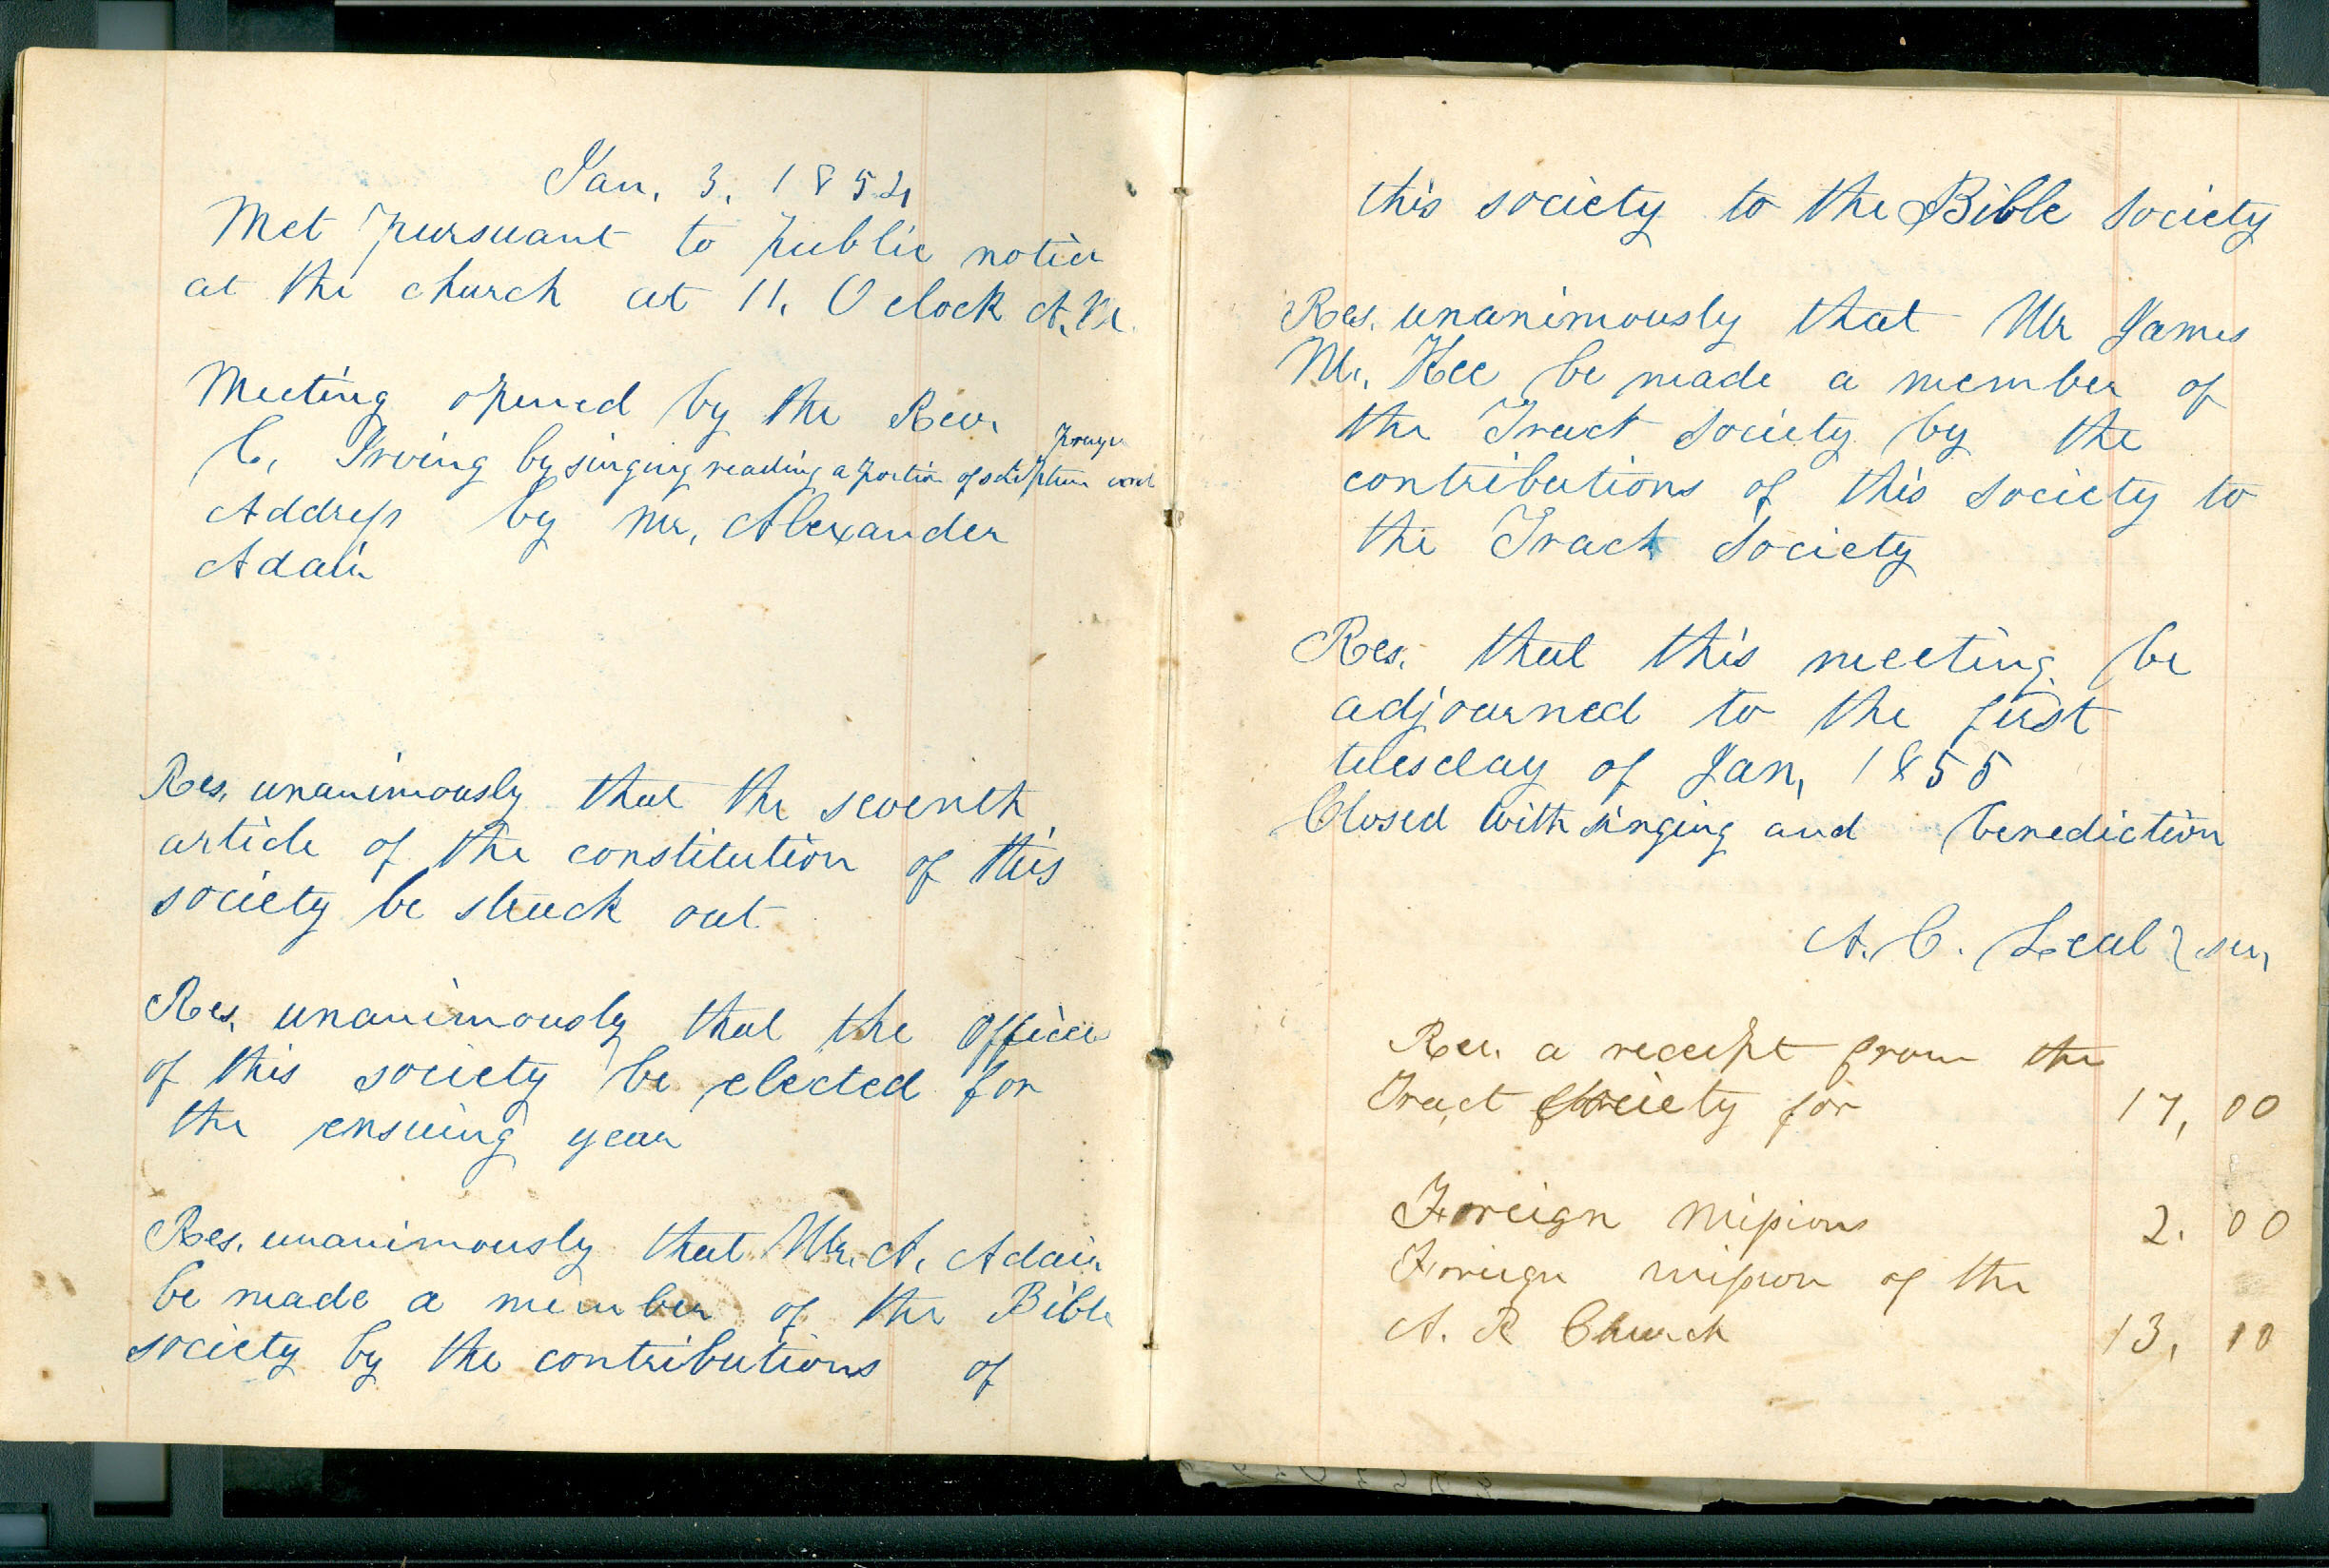 Jan. 3. 1854
Met pursuant to public notice
at the church at 11. O clock A.M.
Meeting opened by the Rev.
C. Irving by singing reading a portion of scripture and prayer
Address by Mr. Alexander
Adair
Res. unanimously that the seventh
article of the constitution of this
society be struck out
Res. unanimously that the officers
of this society be elected for
the ensuing year
Res. unanimously that Mr. A. Adair
be made a member of the Bible
society by the contributions of
this society to the Bible Society
Res. unanimously that Mr James
Mc. Kee be made a member of
the Tract Society by the
contributions of this society to
the Tract Society
Res. that this meeting be
adjourned to the first
tuesday of Jan, 1855
Closed with singing and benediction
A. C. Leal } sec,
Rec. a receipt from the
Tract Society for 17,00
Foreign Missions 2.00
Foreign mission of the
A. R Church 13,10